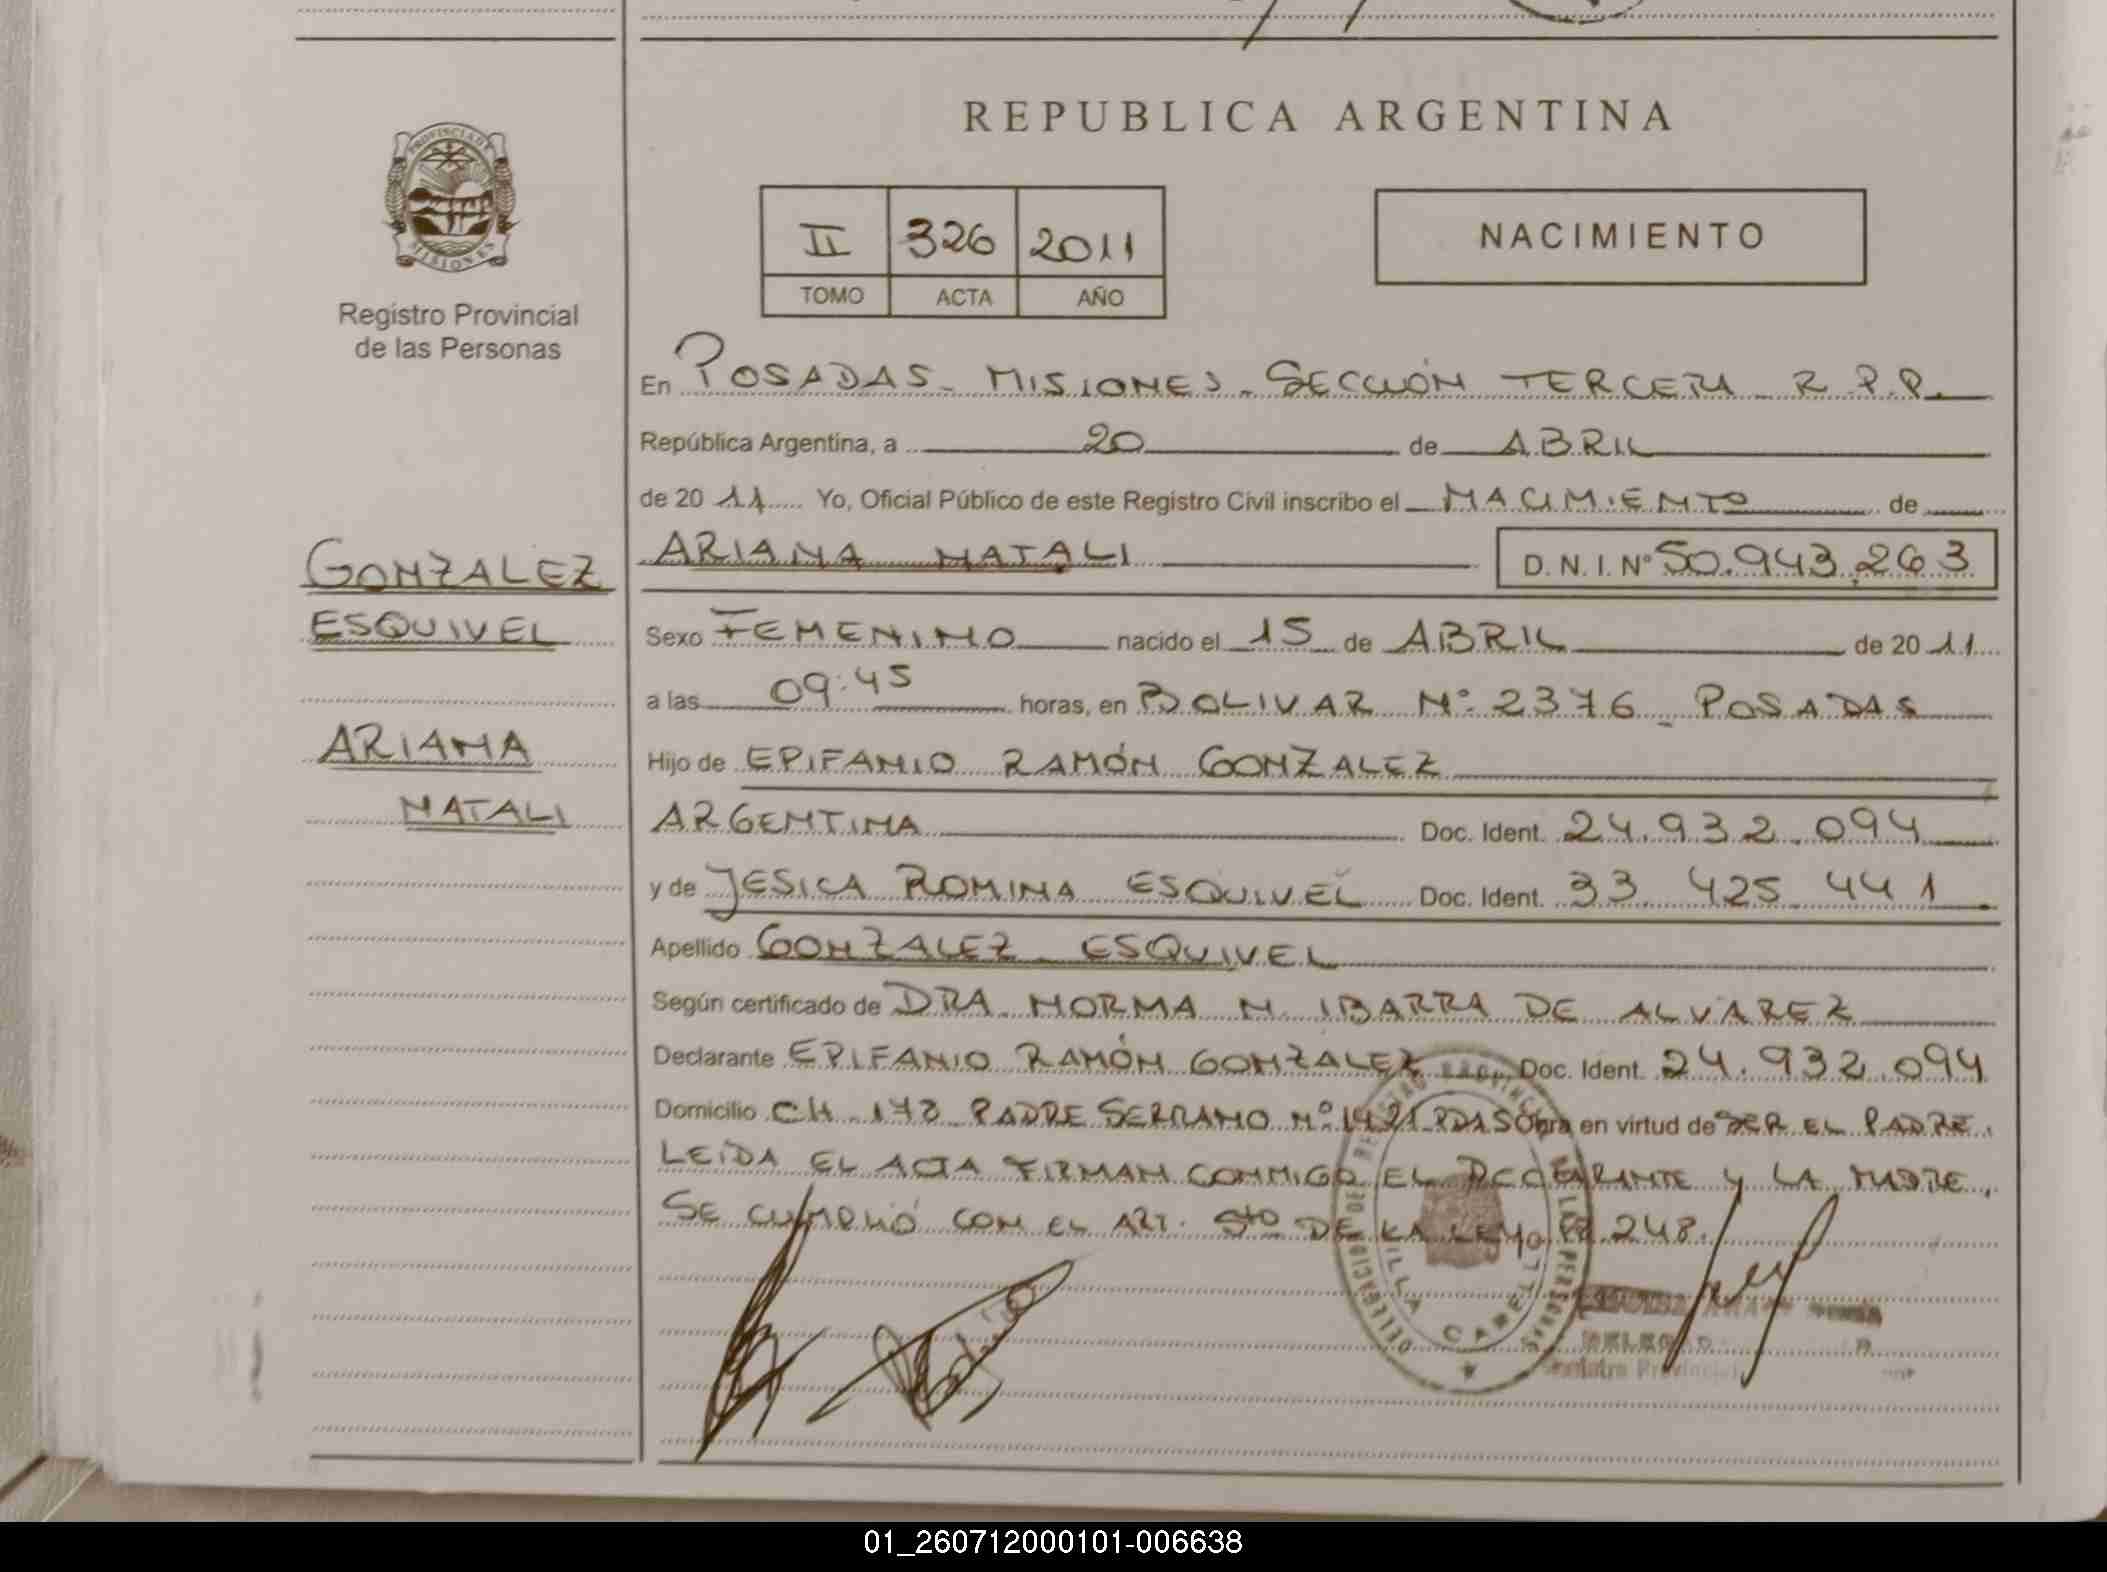 REPUBLICA ARGENTINA
PROVINCIA DE MISIONES
Registro Provincial
de las Personas
II 326 2011
TOMO ACTA AÑO
NACIMIENTO
En POSADAS - MISIONES - SECCIÓN TERCERA R.P.P.
República Argentina, a 20 de ABRIL
de 2011 Yo, Oficial Público de este Registro Civil inscribo el NACIMIENTO de
ARIANA NATALI D. N. I. Nº 50.943.263
GONZALEZ
ESQUIVEL
ARIANA
NATALI
Sexo FEMENINO nacido el 15 de ABRIL de 2011
a las 09:45 horas, en BOLIVAR Nº 2376 - POSADAS
Hijo de EPIFANIO RAMÓN GONZALEZ
ARGENTINA Doc. Ident. 24.932.094
y de JESICA ROMINA ESQUIVEL Doc. Ident. 33.425.441
Apellido GONZALEZ ESQUIVEL
Según certificado de DRA. NORMA N. IBARRA DE ALVAREZ
Declarante EPIFANIO RAMÓN GONZALEZ Doc. Ident. 24.932.094
Domicilio CH. PADRE SERRANO Nº PDAS Obra en virtud de SER EL PADRE.
LEIDA EL ACTA FIRMAN CONMIGO EL DECLARANTE Y LA MADRE.
SE CUMPLIÓ CON EL ART. 5to DE LA LEY 248.
DELEGACION DE REGISTRO PROVINCIAL DE LAS PERSONAS
VILLA CABELLO
Registro Provincial
01_260712000101-006638